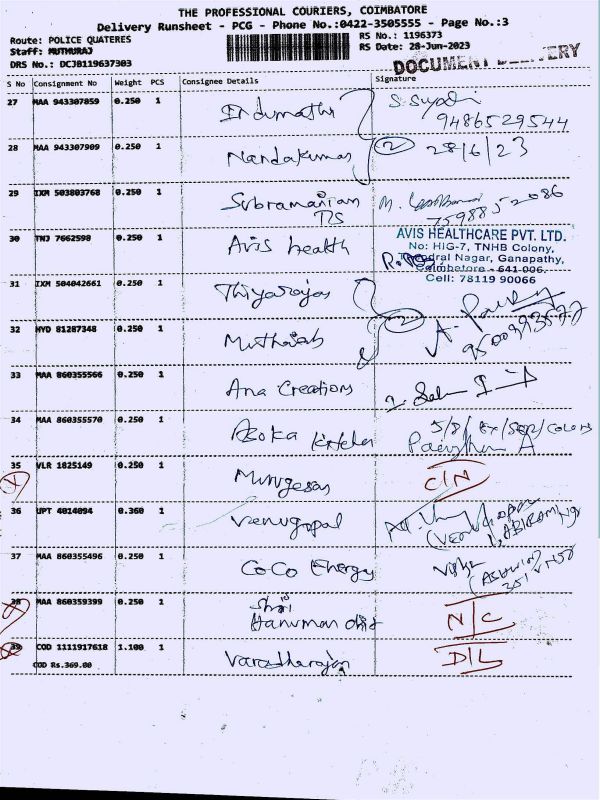 THE PROFESSIONAL COURIERS, COIMBATORE
Delivery Runsheet - PCG - Phone No.:0422-3505555 - Page No.:3
Route: POLICE QUATERES
Staff: MUTHURAJ
DRS No.: DCJB119637303
RS No.: 1196373
RS Date: 28-Jun-2023
DOCUMENT DELIVERY
S No Consignment No Weight PCS Consignee Details Signature
27 MAA 943307859 0.250 1 Indumathi
9486529544
28 MAA 943307909 0.250 1 Nandakumar 2 28/6/23
29 IXM 503803768 0.250 1 Subramaniam M.
7598852086
30 TNJ 7662598 0.250 1 Avis health
AVIS HEALTHCARE PVT. LTD.
No: HIG-7, TNHB Colony,
Nagar, Ganapathy,
Coimbatore - 641 006.
Cell: 78119 90066
31 IXM 504042661 0.250 1 Thiyarajan
32 HYD 81287348 0.250 1 Muthaiah 2 A.
33 MAA 860355566 0.250 1 Ana Creations
34 MAA 860355570 0.250 1 Asoka
35 VLR 1825149 0.250 1 Murugesan C/N
36 UPT 4014094 0.360 1 Venugopal
37 MAA 860355496 0.250 1 CoCo Energy
38 MAA 860359399 0.250 1 Shri
Hanuman N/C
39 COD 1111917618 1.100 1 Varadharajan D/L
COD Rs.369.00